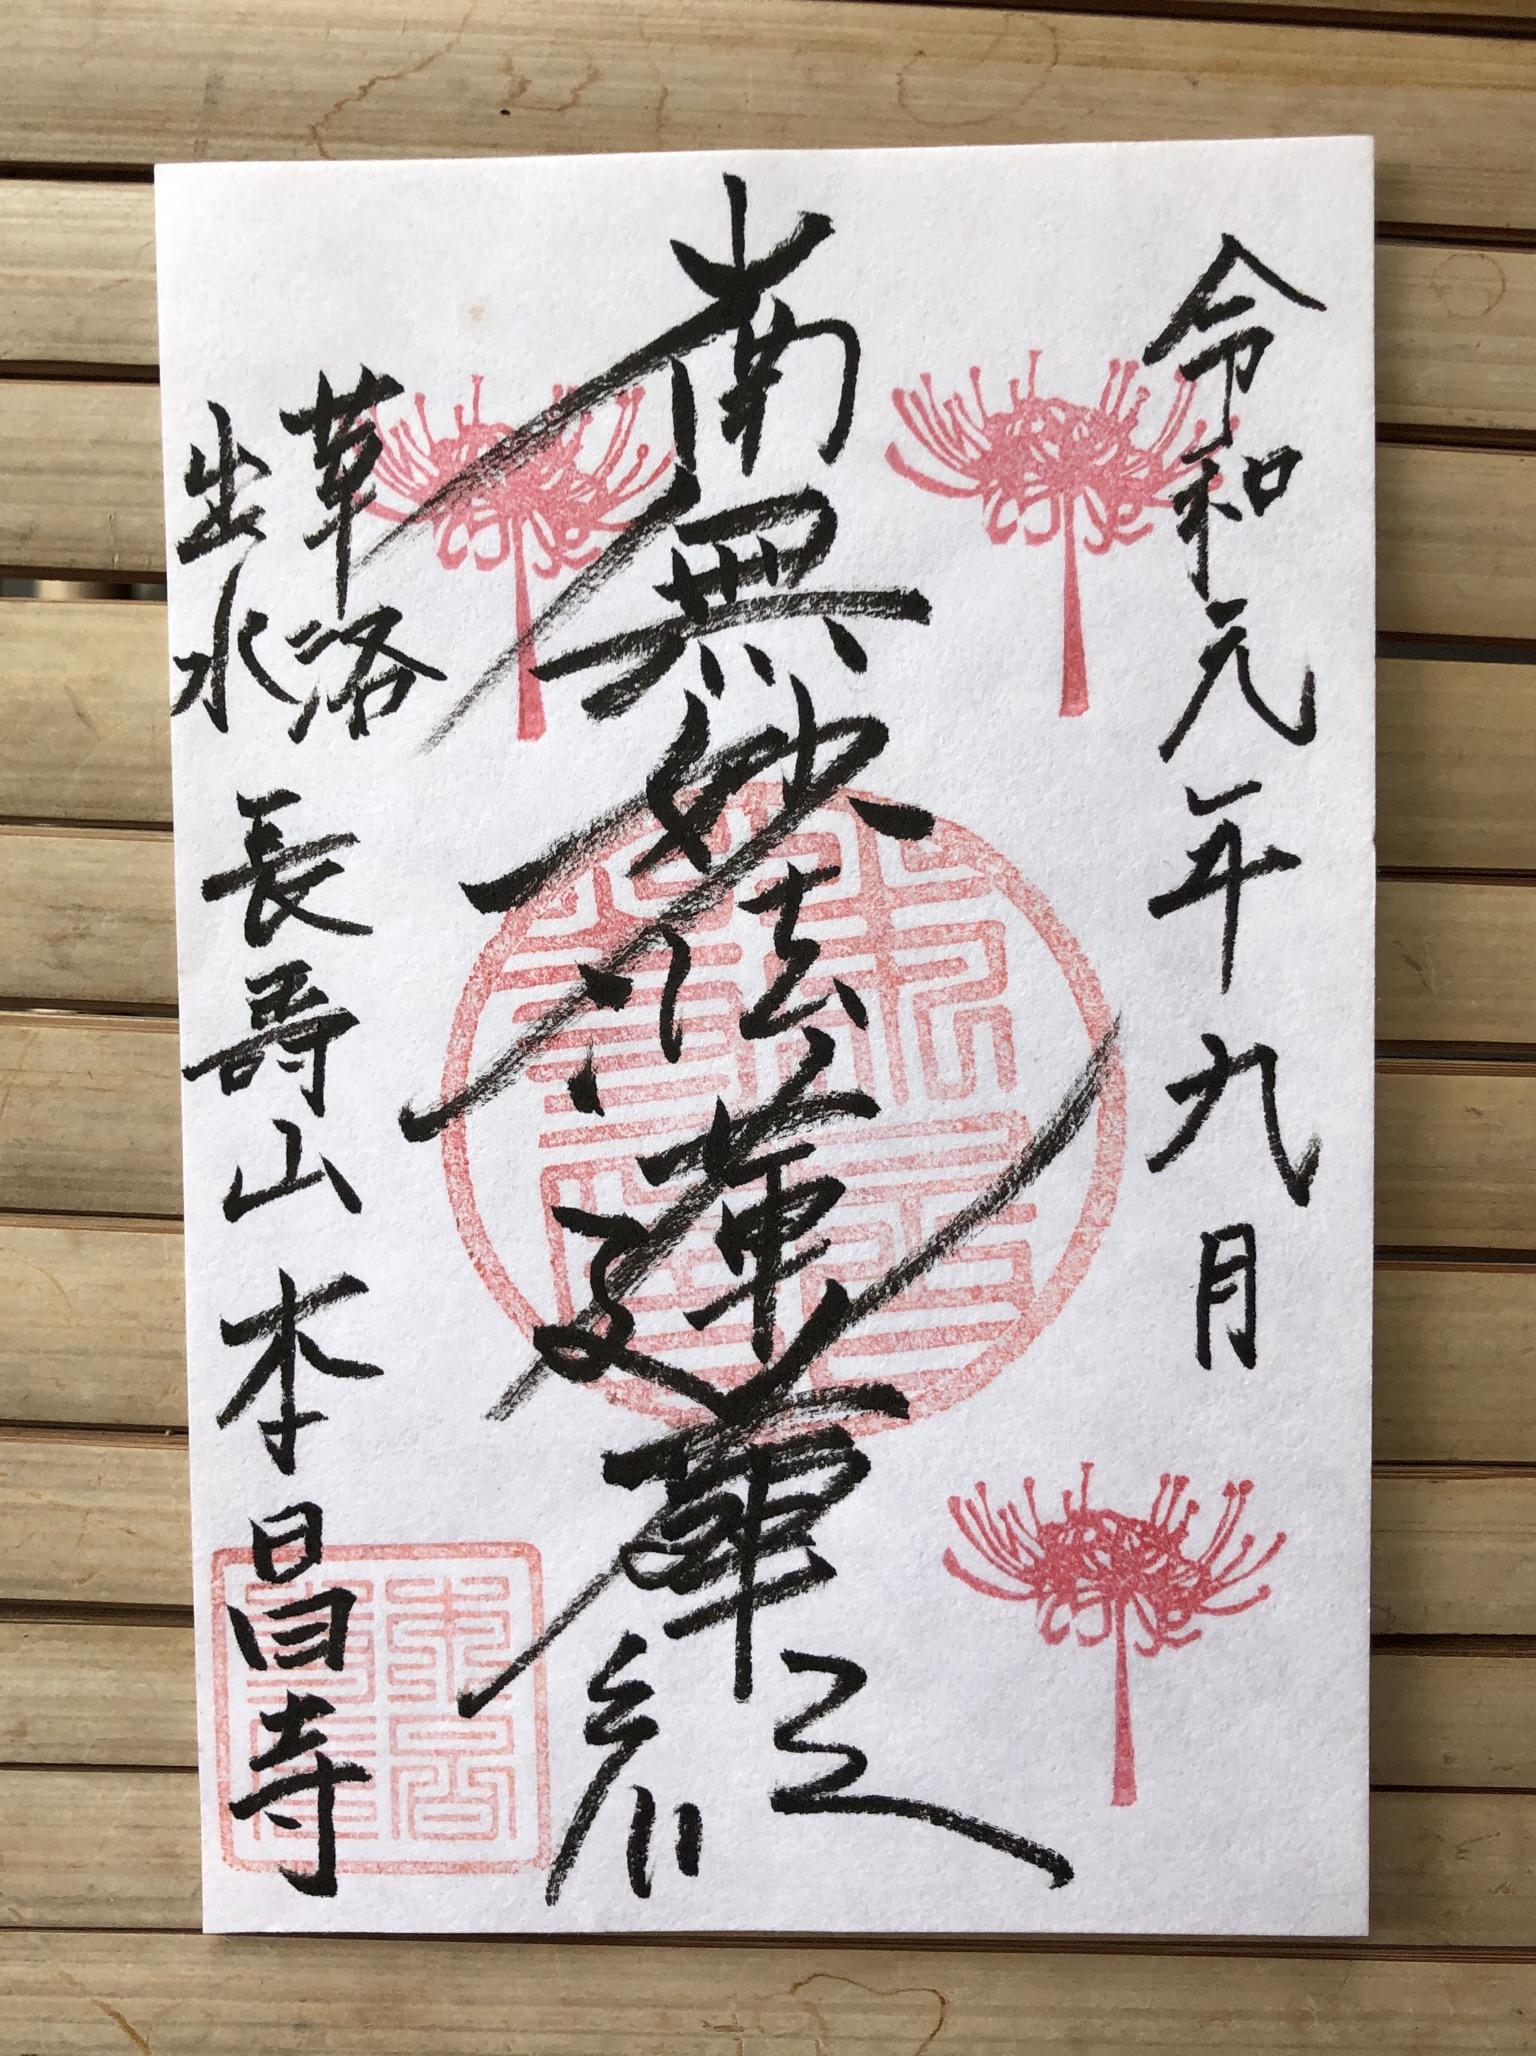 令和元年九月
南無妙法蓮華経
京洛
出水
長壽山 本昌寺